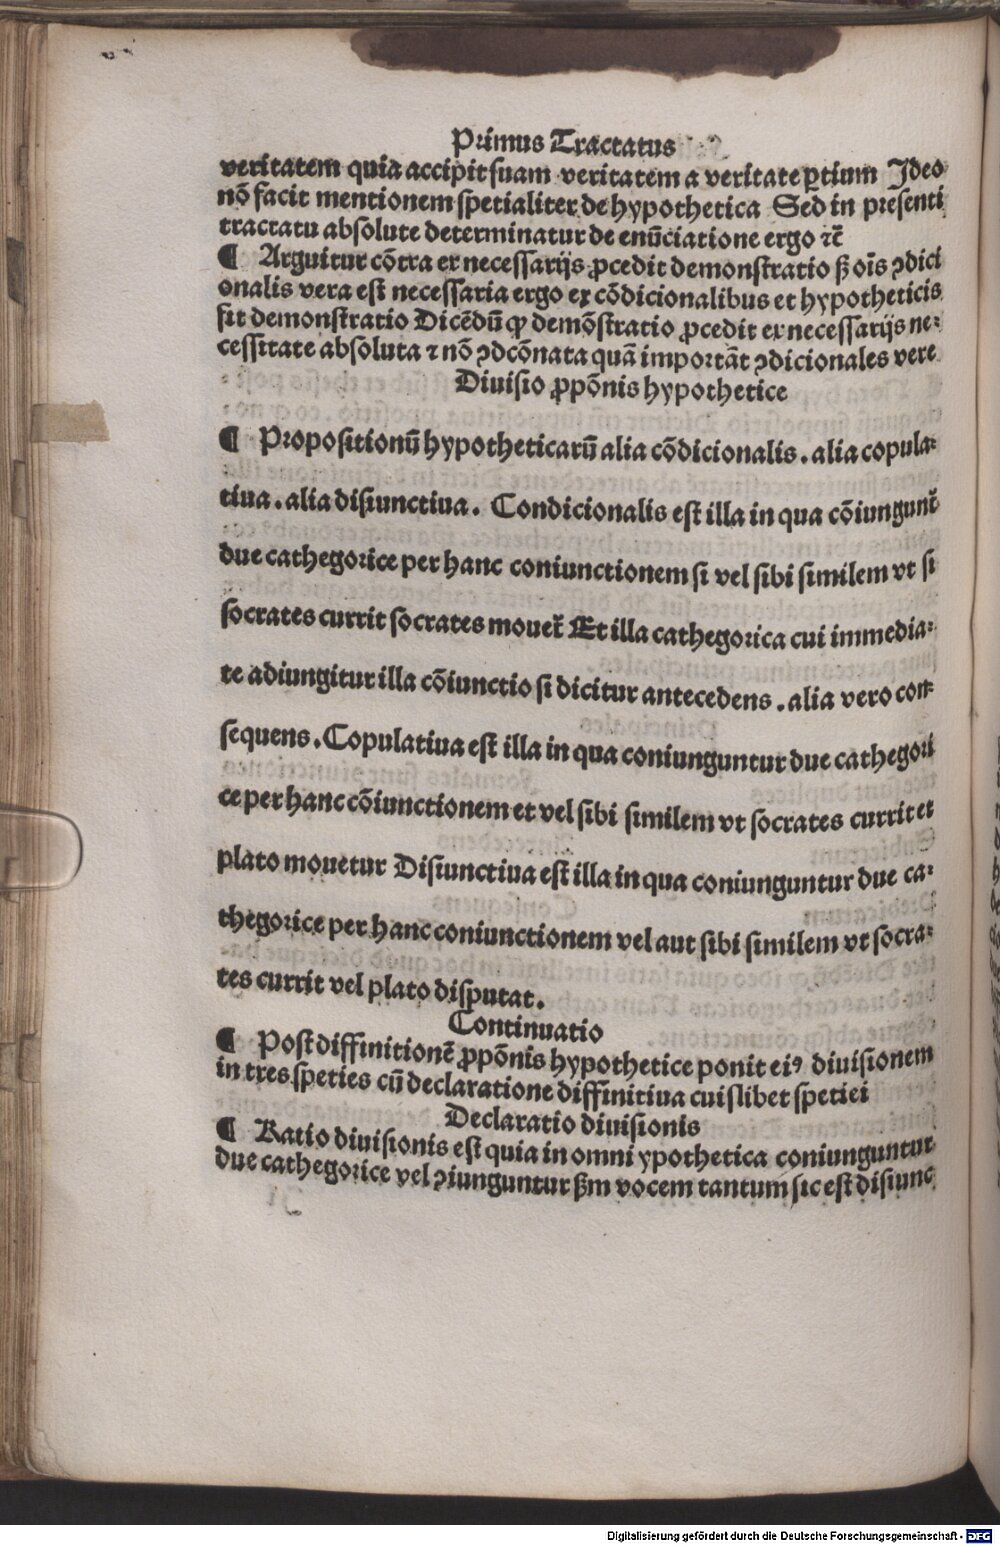 Primus Tractatus
veritatem quia accipit suam veritatem a veritate ꝑtium Ideo
nō facit mentionem spetialiter de hypothetica Sed in presenti
tractatu absolute determinatur de enūciatione ergo ⁊c̄
¶ Arguitur cōtra ex necessarijs ꝓcedit demonstratio sꝫ oīs ꝯdici
onalis vera est necessaria ergo ex cōdicionalibus et hypotheticis
fit demonstratio Dicēdū ꝙ demōstratio ꝓcedit ex necessarijs ne⸗
cessitate absoluta ⁊ nō ꝯdcōnata quā importāt ꝯdicionales vere
Diuisio ꝓpōnis hypothetice
¶ Propositionū hypotheticarū alia cōdicionalis . alia copula⸗
tiua . alia disiunctiua . Condicionalis est illa in qua cōiungunt̄
due cathegorice per hanc coniunctionem si vel sibi similem vt si
socrates currit socrates mouet̄ Et illa cathegorica cui immedia⸗
te adiungitur illa cōiunctio si dicitur antecedens . alia vero con⸗
sequens . Copulatiua est illa in qua coniunguntur due cathegori
ce per hanc cōiunctionem et vel sibi similem vt socrates currit et
plato mouetur Disiunctiua est illa in qua coniunguntur due ca⸗
thegorice per hanc coniunctionem vel aut sibi similem vt socra⸗
tes currit vel plato disputat .
Continuatio
¶ Post diffinitionē ꝓpōnis hypothetice ponit eiꝰ diuisionem
in tres speties cū declaratione diffinitiua cuislibet spetiei
Declaratio diuisionis
¶ Ratio diuisionis est quia in omni ypothetica coniunguntur
due cathegorice vel ꝯiunguntur ẞm vocem tantum sic est disiunc
Digitalisierung gefördert durch die Deutsche Forschungsgemeinschaft - DFG